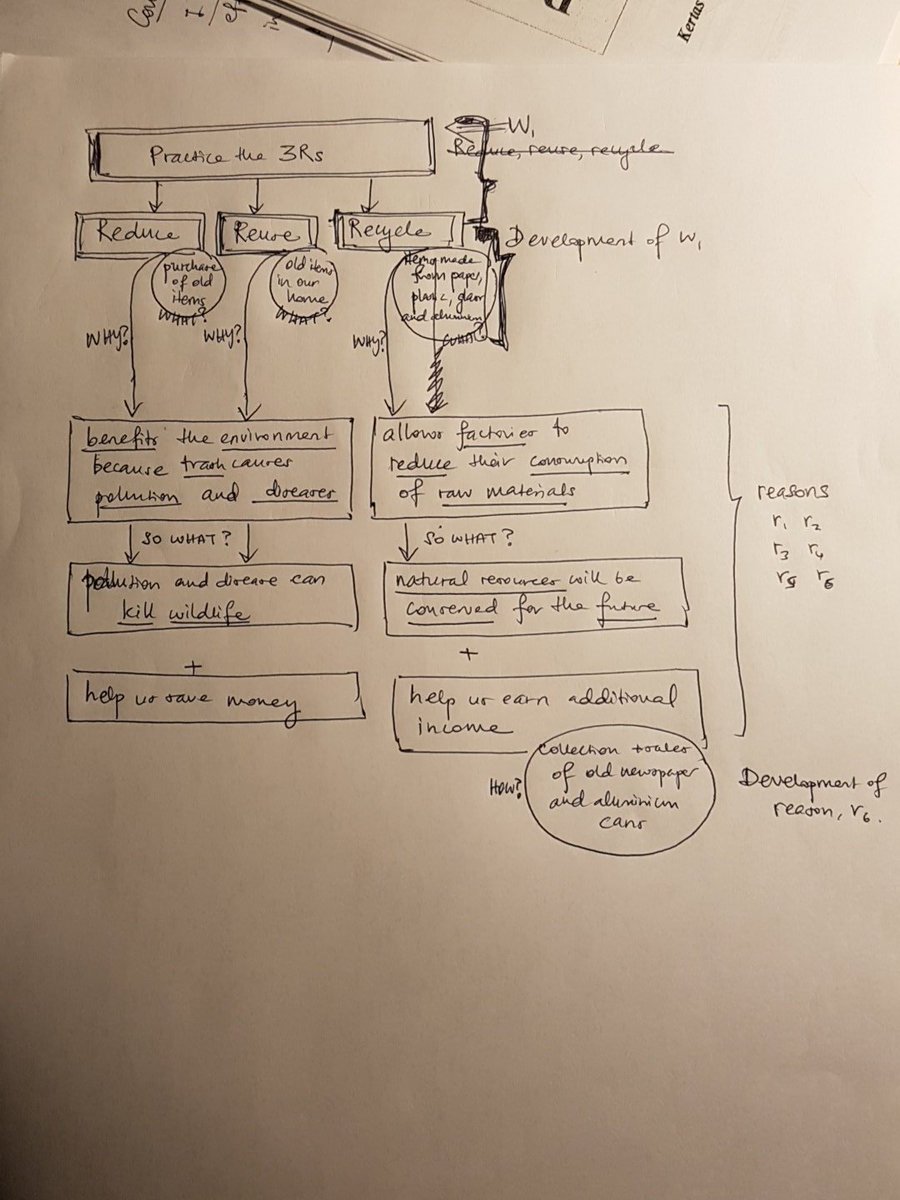 Kertas
Practice the 3Rs
W₁
Reduce, reuse, recycle
Reduce
Reuse
Recycle
Development of W₁
purchase
of old
items
WHAT?
old items
in our
home
WHAT?
Items made
from paper,
plastic, glass
and aluminium
WHAT?
WHY?
WHY?
WHY?
benefits the environment
because trash causes
pollution and diseases
allows factories to
reduce their consumption
of raw materials
SO WHAT?
SO WHAT?
pollution and disease can
kill wildlife
natural resources will be
conserved for the future
+
+
help us save money
help us earn additional
income
reasons
r₁ r₂
r₃ r₄
r₅ r₆
How?
collection + sales
of old newspaper
and aluminium
cans
Development of
reason, r₆.